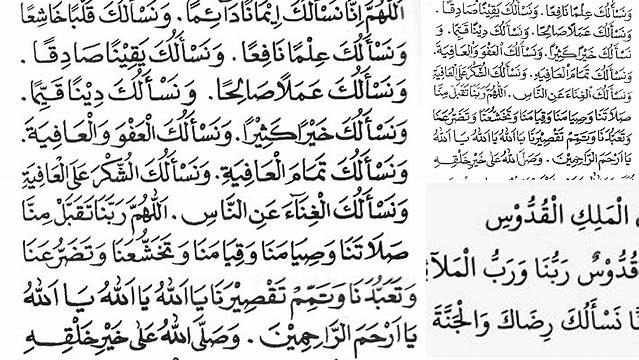 اَللّٰهُمَّ اِنَّا نَسْأَلُكَ اِيْمَانًا دَائِمًا. وَنَسْأَلُكَ قَلْبًا خَاشِعًا
وَنَسْأَلُكَ عِلْمًا نَافِعًا. وَنَسْأَلُكَ يَقِيْنًا صَادِقًا.
وَنَسْأَلُكَ عَمَلًا صَالِحًا. وَنَسْأَلُكَ دِيْنًا قَيِّمًا.
وَنَسْأَلُكَ خَيْرًا كَثِيْرًا. وَنَسْأَلُكَ الْعَفْوَ وَالْعَافِيَةَ.
وَنَسْأَلُكَ تَمَامَ الْعَافِيَةِ. وَنَسْأَلُكَ الشُّكْرَ عَلَى الْعَافِيَةِ
وَنَسْأَلُكَ الْغِنَاءَ عَنِ النَّاسِ. اَللّٰهُمَّ رَبَّنَا تَقَبَّلْ مِنَّا
صَلَاتَنَا وَصِيَامَنَا وَقِيَامَنَا وَتَخَشُّعَنَا وَتَضَرُّعَنَا
وَتَعَبُّدَنَا وَتَمِّمْ تَقْصِيْرَنَا يَا اَللّٰهُ يَا اَللّٰهُ يَا اَللّٰهُ
يَا اَرْحَمَ الرَّاحِمِيْنَ. وَصَلَّى اللّٰهُ عَلَى خَيْرِ خَلْقِهِ
وَنَسْأَلُكَ عِلْمًا نَافِعًا. وَنَسْأَلُكَ يَقِيْنًا صَادِقًا.
وَنَسْأَلُكَ عَمَلًا صَالِحًا. وَنَسْأَلُكَ دِيْنًا قَيِّمًا. وَ
نَسْأَلُكَ خَيْرًا كَثِيْرًا. وَنَسْأَلُكَ الْعَفْوَ وَالْعَافِيَةَ.
وَنَسْأَلُكَ تَمَامَ الْعَافِيَةِ. وَنَسْأَلُكَ الشُّكْرَ عَلَى الْعَافِيَةِ
وَنَسْأَلُكَ الْغِنَاءَ عَنِ النَّاسِ. اَللّٰهُمَّ رَبَّنَا تَقَبَّلْ مِنَّا
صَلَاتَنَا وَصِيَامَنَا وَقِيَامَنَا وَتَخَشُّعَنَا وَتَضَرُّعَنَا
وَتَعَبُّدَنَا وَتَمِّمْ تَقْصِيْرَنَا يَا اَللّٰهُ يَا اَللّٰهُ يَا اَللّٰهُ
يَا اَرْحَمَ الرَّاحِمِيْنَ. وَصَلَّى اللّٰهُ عَلَى خَيْرِ خَلْقِهِ
الْمَلِكِ الْقُدُّوْسِ
قُدُّوْسٌ رَبُّنَا وَرَبُّ الْمَلَآئِ
نَّا نَسْأَلُكَ رِضَاكَ وَالْجَنَّةَ